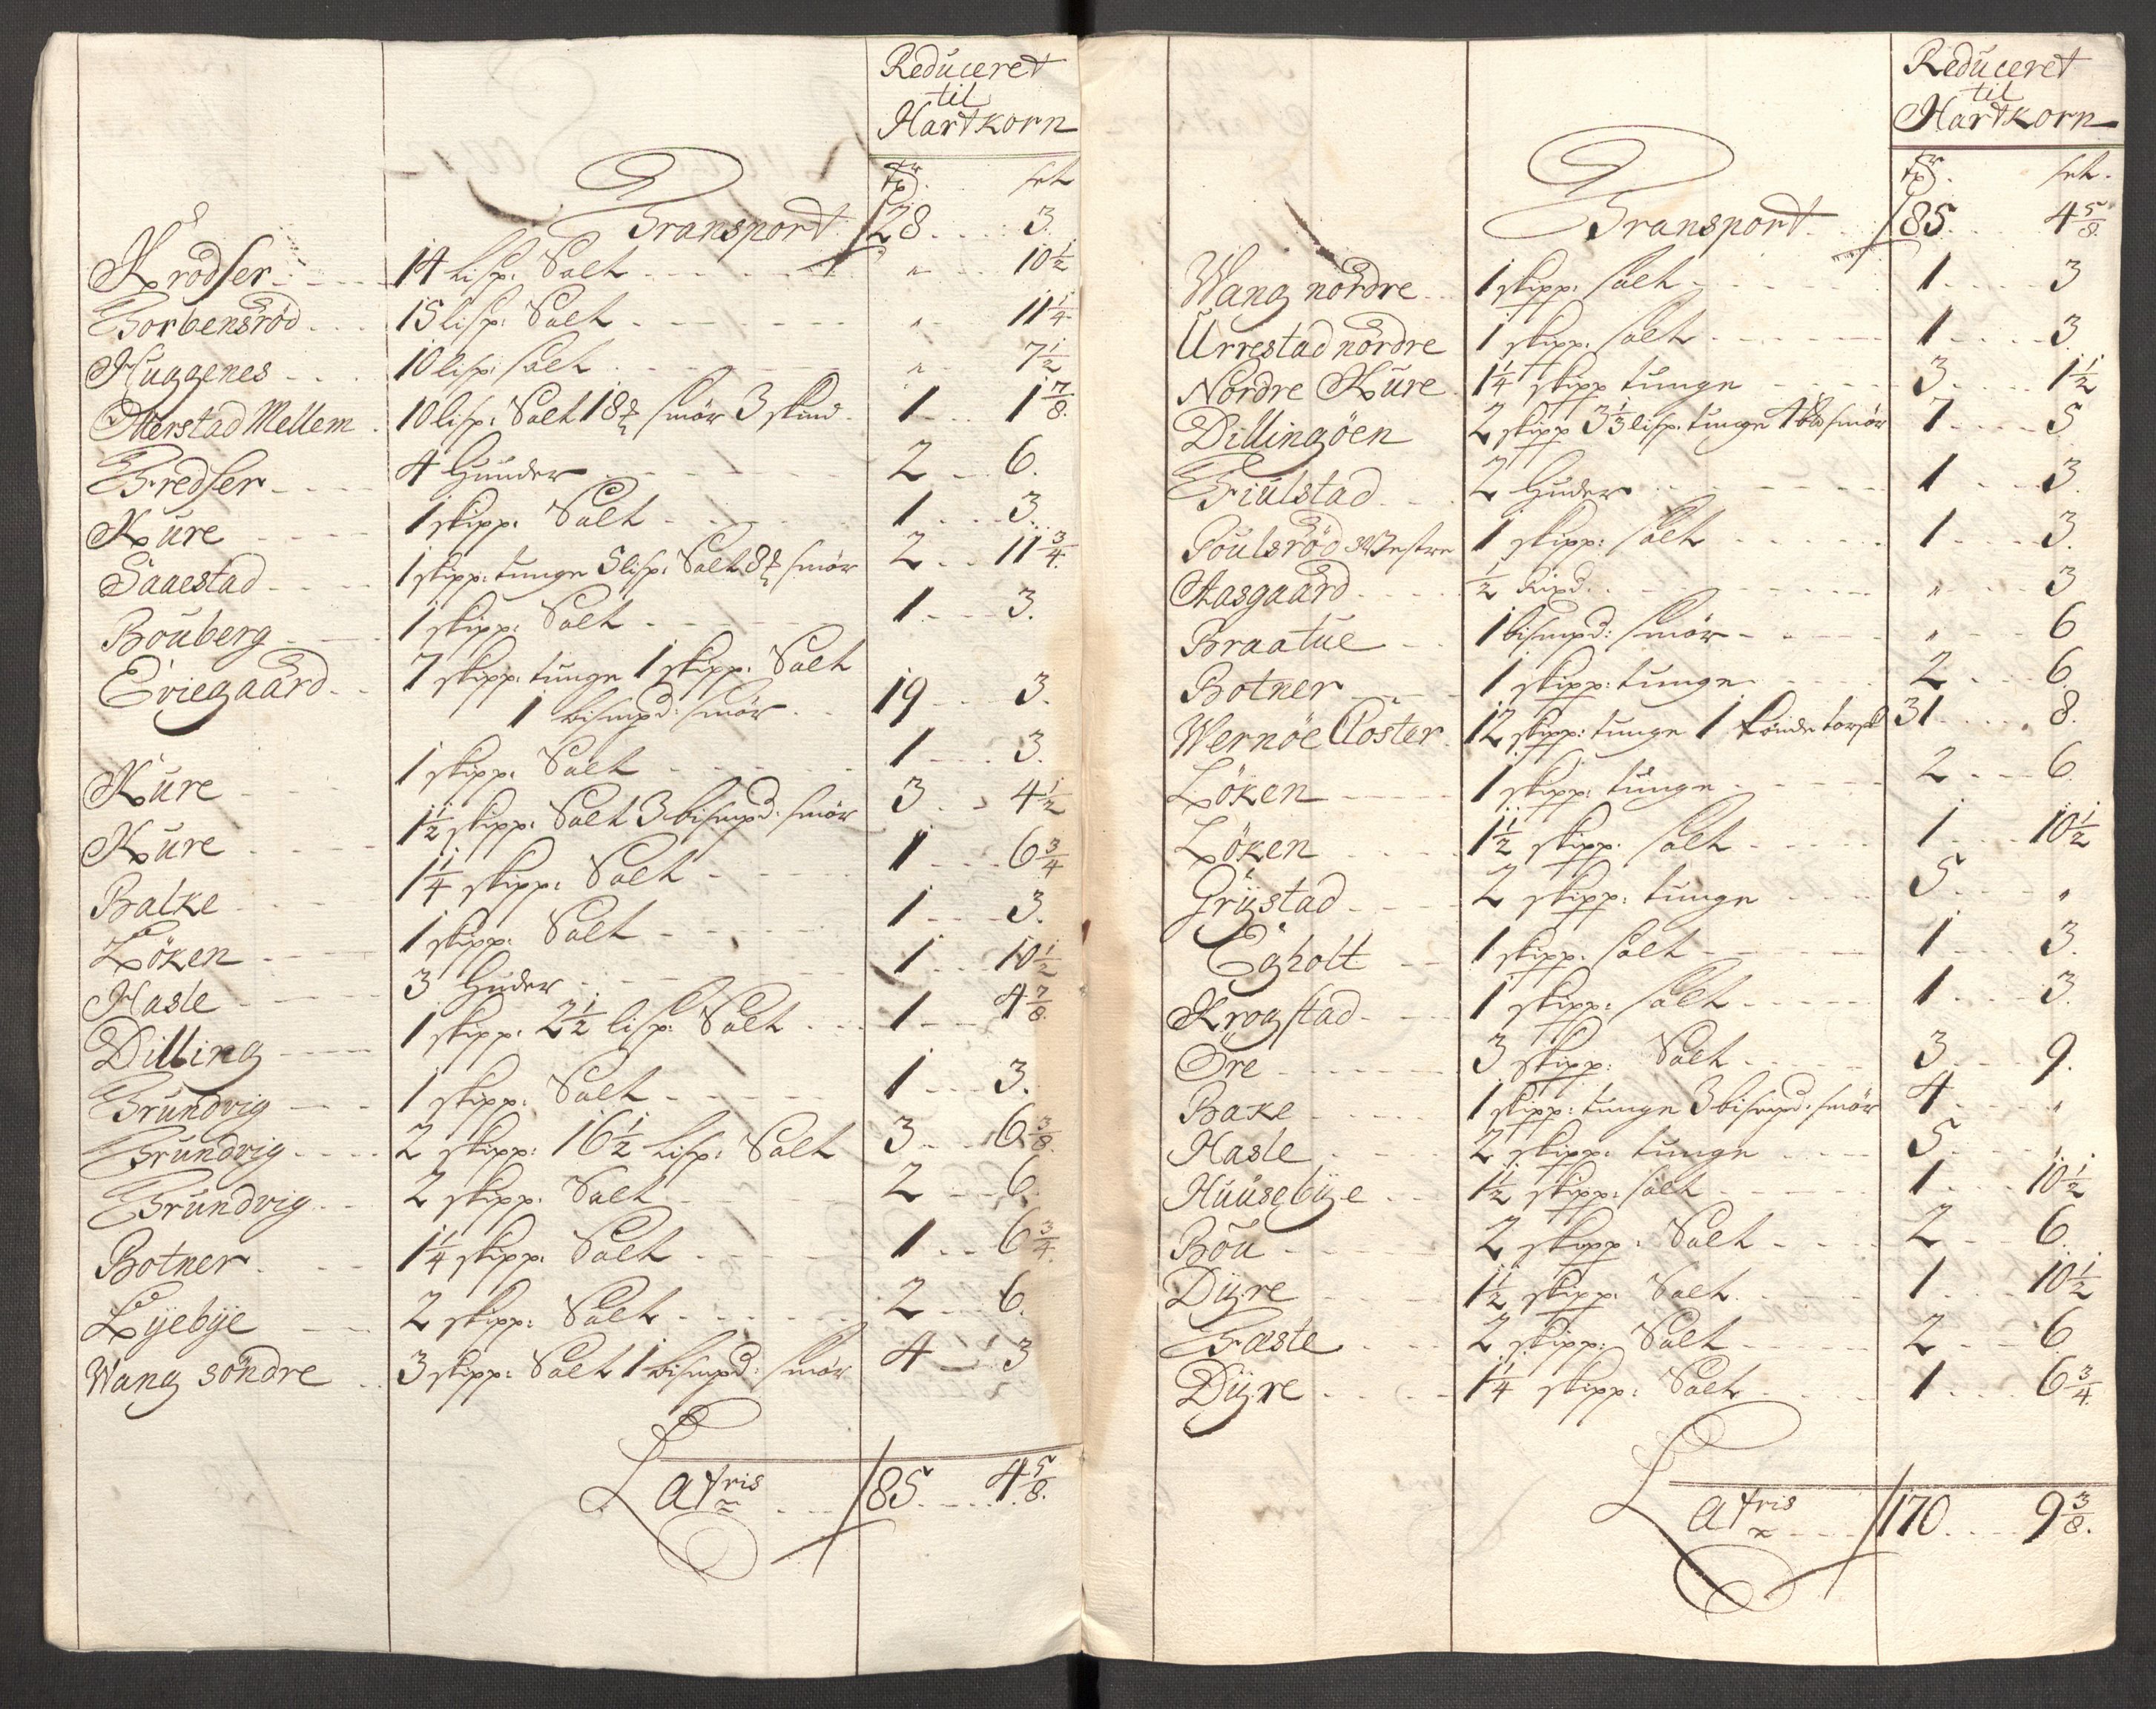 Reduceret
til
Hartkorn
Tr. sk
Transport 28 3.
Krodser 14 lisp. Salt " 10½
Torbensröd 15 lisp: Salt " 11¼
Huggenes 10 lisp: salt " 7½
Otterstad Mellem 10 lisp: Salt 18 smör 3 skind 1 1⅞
Tredser 4 Hunder 2 6.
Kure 1 skipp. Salt 1 3.
Saaestad 1 skipp: tunge 5 lisp: Salt 8 smör 2 11¾
Bouberg 1 skipp: Salt 1 3.
Eviegaard 7 skipp: tunge 1 skipp: Salt
1 bismpd: smör 19 3.
Kure 1 skipp. Salt 1 3.
Kure 1½ skipp: Salt 3 bismpd: smör 3 4½
Balke 1¼ skipp: Salt 1 6¾
Löken 1 skipp. Salt 1 3.
Hasle 3 Huder 1 10½
Dilling 1 skipp. 2½ lisp: Salt 1 4⅞
Grundvig 1 skipp: Salt 1 3.
Grundvig 2 skipp: 16½ Lisp: Salt 3 6⅜
Grundvig 2 skipp. Salt 2 6
Botner 1¼ skipp. Salt 1 6¾
Lyebye 2 skipp: Salt 2 6.
Wang söndre 3 skipp: Salt 1 bismpd: smör 4 3
Latris 85 4⅝
Reduceret
til
Hartkorn
Tr. sk.
Transport 85 4⅝
Wang nordre 1 skipp. salt 1 3
Urrestad nordre 1 skipp. salt 1 3
Nordre Kure 1¼ skipp tunge 3 1½
Dillingöen 2 skipp 3⅓ lisp. tunge smör 7 5
Fiulstad 2 Huder 1 3.
Poulsröd Westre 1 skipp: salt 1 3.
Aasgaard ½ Hud " 3
Braatue 1 bismpd: smör " 6
Botner 1 skipp: tunge 2 6
Wernöe Closter 12 skipp: tunge 1 tönde torsk 31 8.
Löken 1 skipp: tunge 2 6
Löken 1½ skipp. salt 1 10½
Grystad 2 skipp: tunge 5 "
Egholt 1 skipp. salt 1 3.
Krogstad 1 skipp: salt 1 3.
Öre 3 skipp: Salt 3 9.
Baxe 1 skipp: tunge 3 bismpd. smör 4 "
Hasle 2 skipp. tunge 5 "
Huusebye 1½ skipp: salt 1 10½
Böu 2 skipp. Salt 2 6.
Dyre 1½ skipp. Salt 1 10½
Fæste 2 skipp: Salt 2 6
Dyre 1¼ skipp: Salt 1 6¾
Latris 170 9⅜